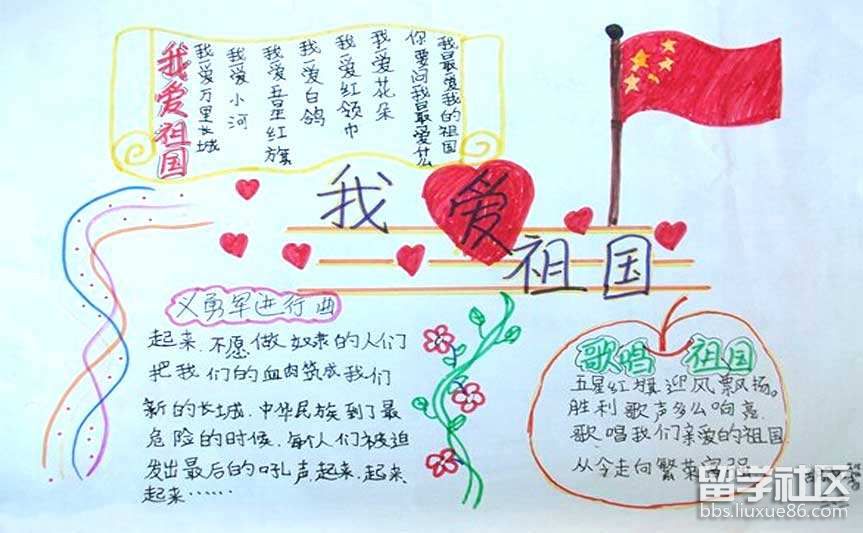 我爱祖国
我爱万里长城
我爱小河
我爱五星红旗
我爱白鸽
我爱红领巾
我爱花朵
你要问我最爱什么
我最爱我的祖国
我爱
祖国
义勇军进行曲
起来.不愿做奴隶的人们
把我们的血肉筑成我们
新的长城.中华民族到了最
危险的时候.每个人们被迫
发出最后的吼声.起来.起来.
起来……
歌唱 祖国
五星红旗迎风飘扬。
胜利歌声多么响亮.
歌唱我们亲爱的祖国
从今走向繁荣富强
留学社区
bbs.liuxue86.com